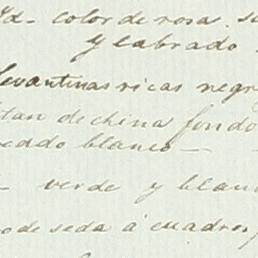 Yd- color de rosa.
y labrado
levantinas ricas negr
tan de china fondo
eado blanco —
— verde y blan
o de seda á cuadros